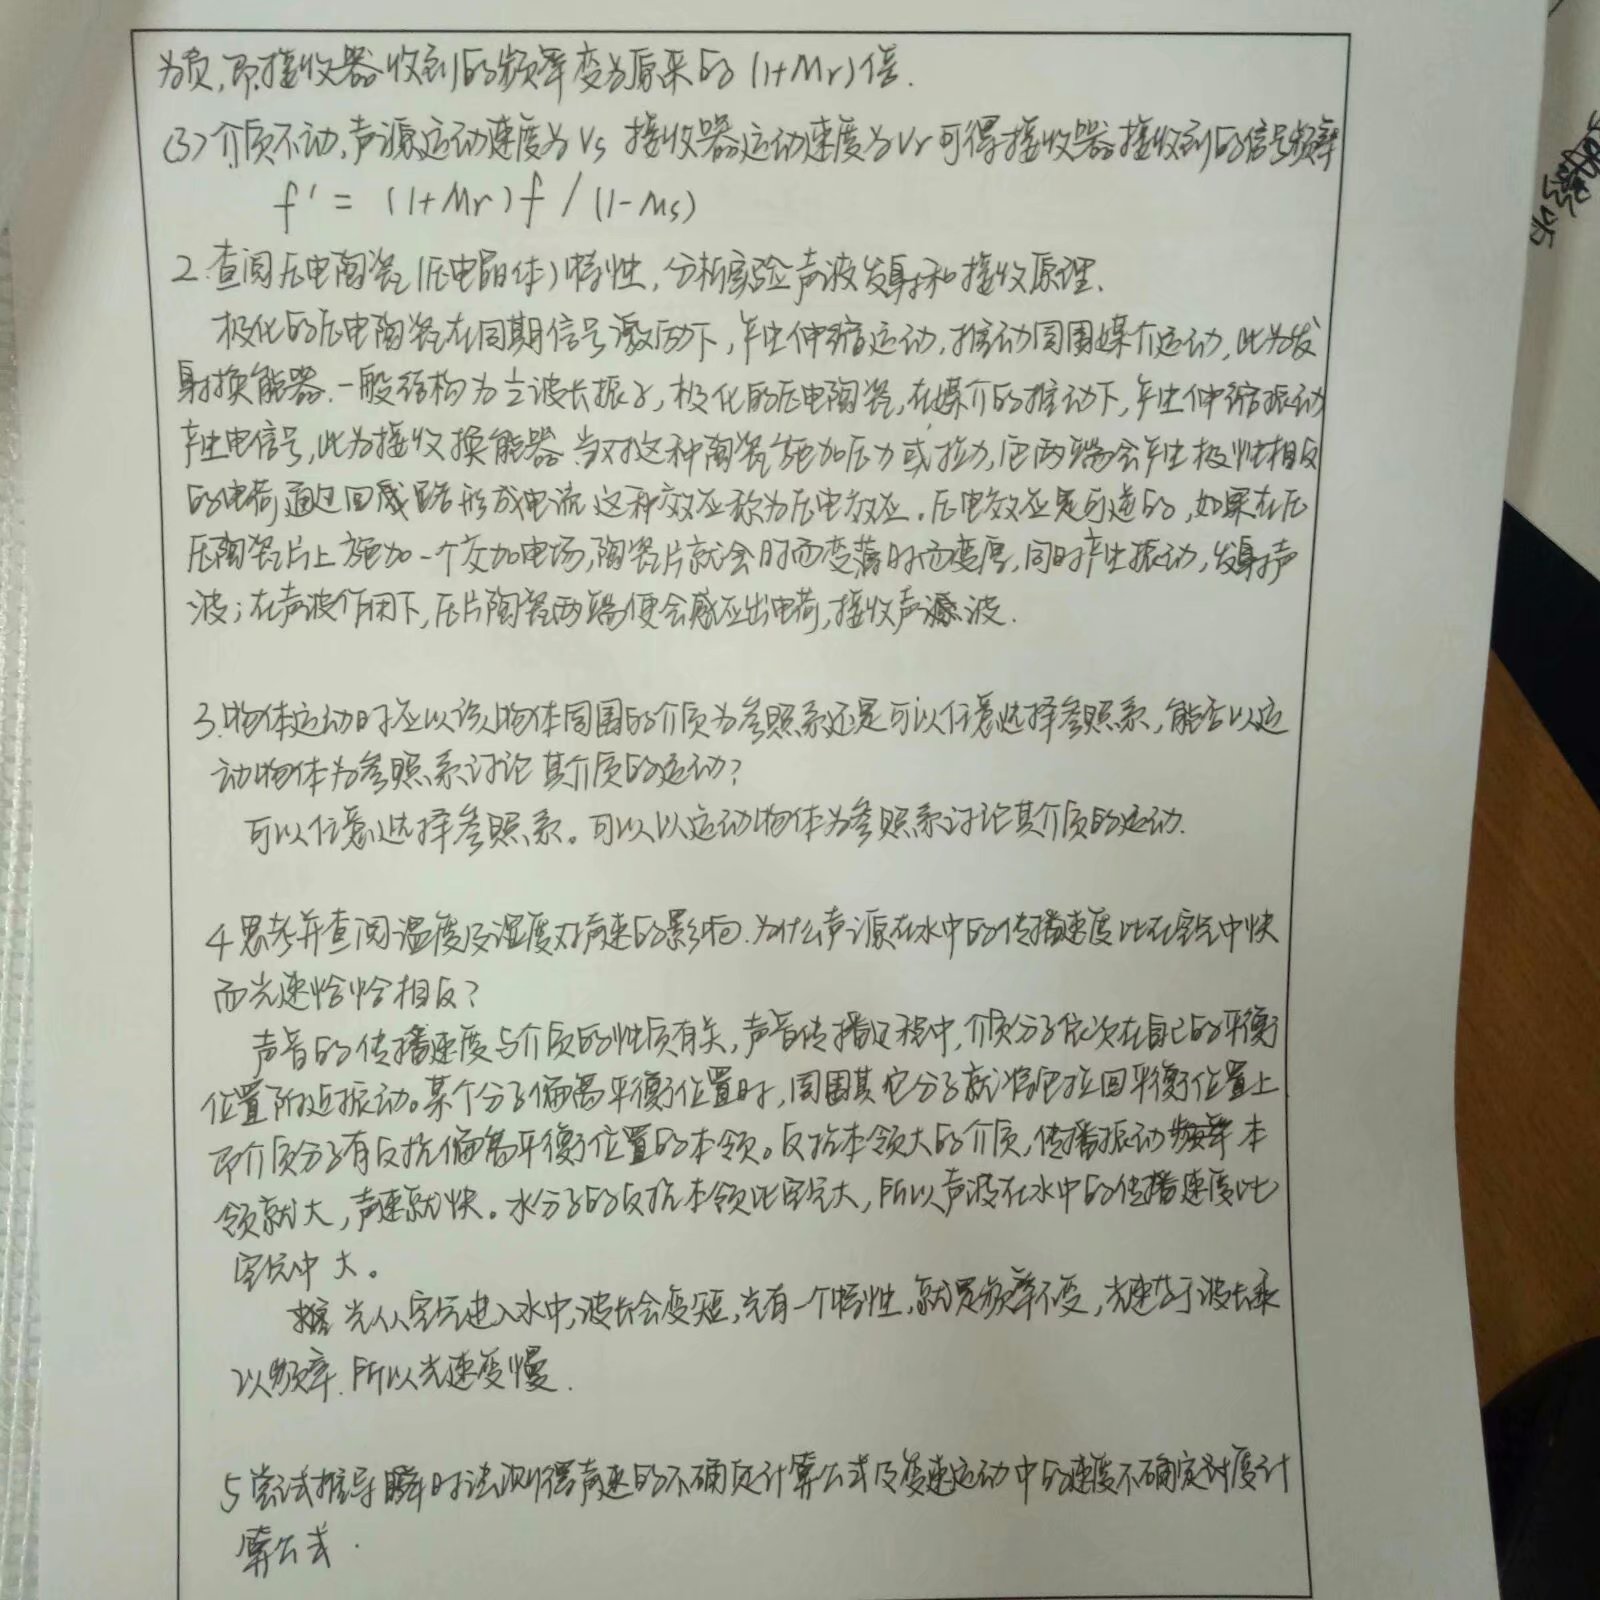 为负，即接收器收到的频率变为原来的(1+Mr)倍.
(3)介质不动,声源运动速度为Vs 接收器运动速度为Vr可得接收器接收到的信号频率
f' = (1+Mr)f / (1-Ms)
2.查阅压电陶瓷(压电晶体)特性，分析实验声波发射和接收原理.
极化的压电陶瓷在同期信号激励下，产生伸缩运动，推动周围媒介运动，此为发
射换能器.一般结构为½波长振子，极化的压电陶瓷，在媒介的推动下，产生伸缩振动
产生电信号,此为接收换能器.当对这种陶瓷施加压力或拉力,它两端会产生极性相反
的电荷通过回路形成电流 这种效应称为压电效应。压电效应是可逆的，如果在压
压陶瓷片上施加一个交加电场,陶瓷片就会时而变薄时而变厚,同时产生振动,发射声
波；在声波作用下,压片陶瓷两端便会感应出电荷,接收声波.
3.物体运动时应以该物体周围的介质为参照系还是可以任意选择参照系，能否以运
动物体为参照系讨论其介质的运动？
可以任意选择参照系。可以以运动物体为参照系讨论其介质的运动.
4思考并查阅温度及湿度对声速的影响.为什么声源在水中的传播速度比在空气中快
而光速恰恰相反？
声音的传播速度与介质的性质有关，声音传播过程中，介质分子依次在自己的平衡
位置附近振动。某个分子偏离平衡位置时，周围其它分子就将它拉回平衡位置上
即介质分子有反抗偏离平衡位置的本领。反抗本领大的介质，传播振动 本
领就大，声速就快。水分子的反抗本领比空气大，所以声波在水中的传播速度比
空气中大。
光从空气进入水中,波长会变短,光有一个特性，就是频率不变，光速等于波长乘
以频率.所以光速变慢.
5尝试推导瞬时法测得声速的不确定计算公式及变速运动中的速度不确定度计
算公式.